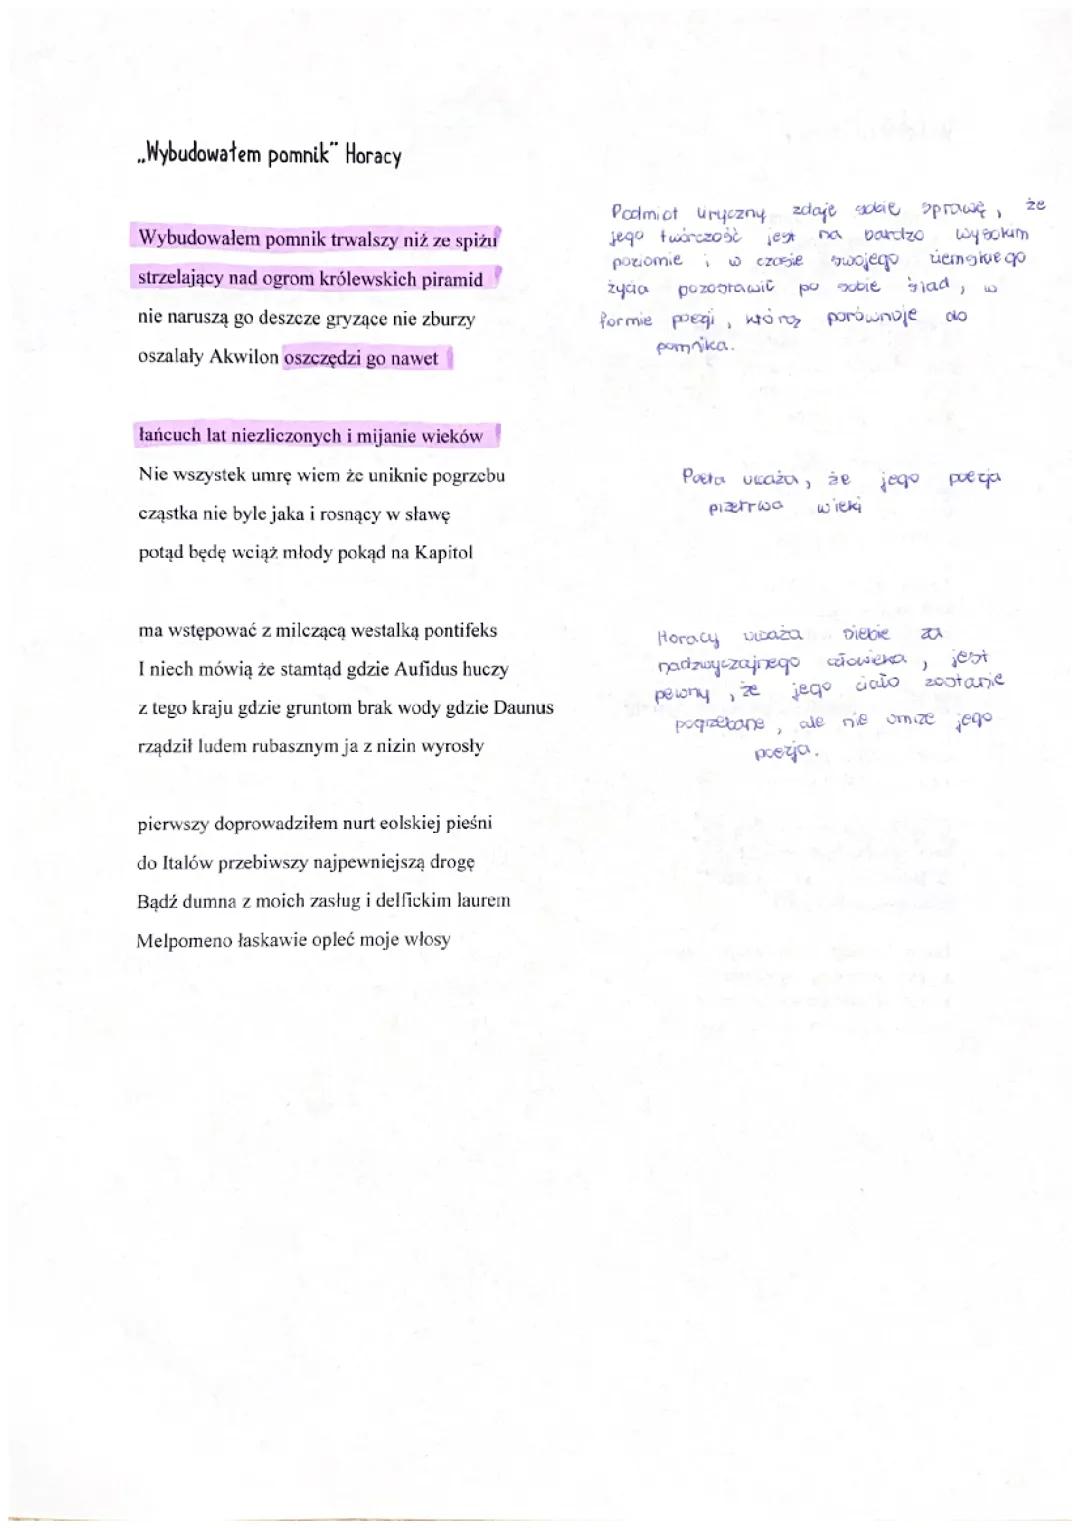 „Wybudowałem pomnik" Horacy
Wybudowałem pomnik trwalszy niż ze spiżu
strzelający nad ogrom królewskich piramid
nie naruszą go deszcze gryzące nie zburzy
oszalały Akwilon oszczędzi go nawet
łańcuch lat niezliczonych i mijanie wieków
Nie wszystek umrę wiem że uniknie pogrzebu
cząstka nie byle jaka i rosnący w sławę
potąd będę wciąż młody pokąd na Kapitol
ma wstępować z milczącą westalką pontifeks
I niech mówią że stamtąd gdzie Aufidus huczy
z tego kraju gdzie gruntom brak wody gdzie Daunus
rządził ludem rubasznym ja z nizin wyrosły
pierwszy doprowadziłem nurt eolskiej pieśni
do Italów przebiwszy najpewniejszą drogę
Bądź dumna z moich zasług i delfickim laurem
Melpomeno łaskawie opleć moje włosy
Podmiot liryczny zdaje sobie sprawę, że
jego twórczość jest na bardzo wysokim
poziomie i w czasie swojego ziemskiego
życia pozostawić po sobie ślad, w
formie poezji, którą porównuje do
pomnika.
Poeta uważa, że jego poezja
przetrwa wieki
Horacy uważa siebie za
nadzwyczajnego człowieka, jest
pewny, że jego ciało zostanie
pogrzebane, ale nie umrze jego
poezja.